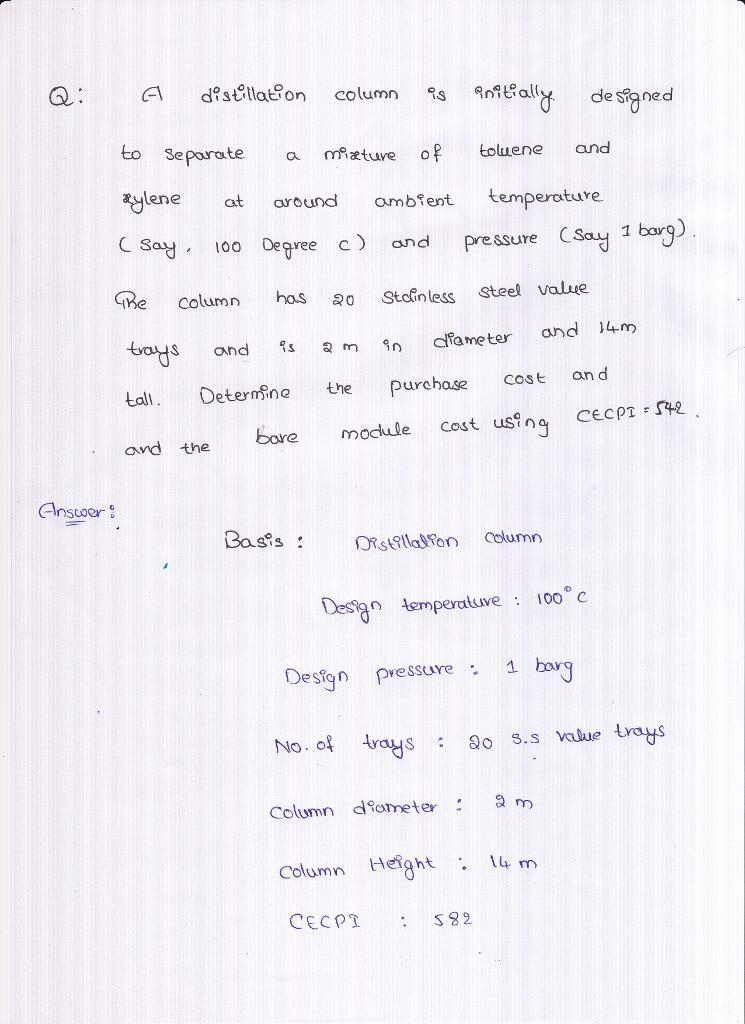 Q: A distillation column is initially designed
to separate a mixture of toluene and
xylene at around ambient temperature
(Say, 100 Degree c) and pressure (Say 1 barg).
The column has 20 Stainless steel value
trays and is 2 m in diameter and 14m
tall. Determine the purchase cost and
and the bare module cost using CECPI = 542.
Answer:
Basis: Distillation column
Design temperature : 100°c
Design pressure : 1 barg
No. of trays : 20 s.s value trays
Column diameter : 2 m
Column Height : 14 m
CECPI : 582